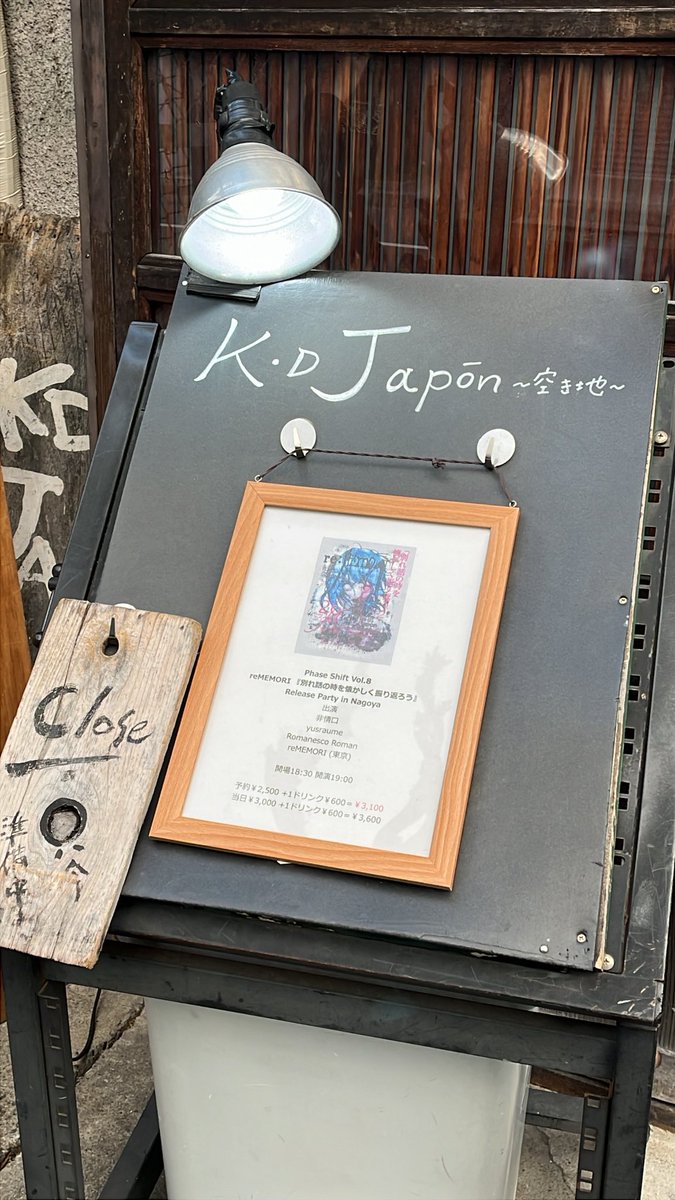 K・D Japōn ~空き地~
KD
JA
Phase Shift Vol.8
reMEMORI 『別れ話の時を懐かしく振り返ろう』
Release Party in Nagoya
出演
非情口
yusraume
Romanesco Roman
reMEMORI (東京)
開場18:30 開演19:00
予約¥2,500 +1ドリンク¥600= ¥3,100
当日¥3,000 +1ドリンク¥600= ¥3,600
Close
準備中